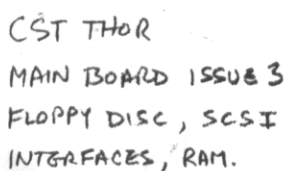 CST THOR
MAIN BOARD ISSUE 3
FLOPPY DISC, SCSI
INTERFACES, RAM.